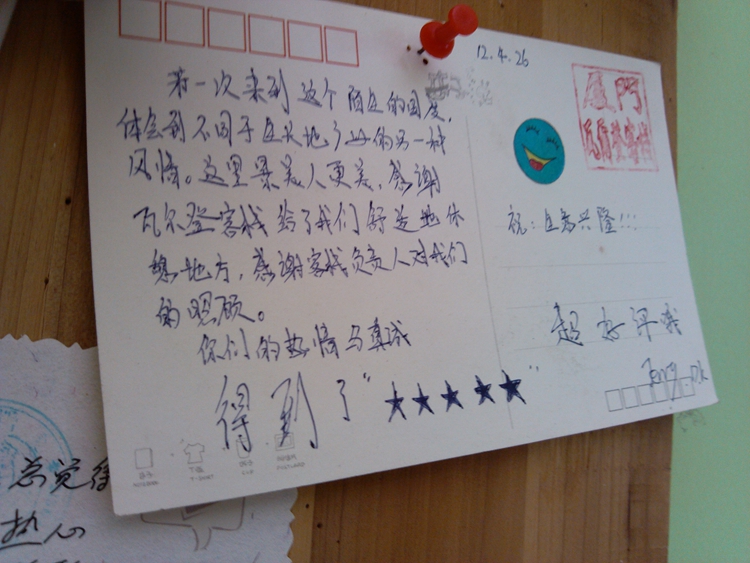 12.4.26
第一次来到这个陌生的国度,
体会到不同于生长地方的另一种
风情。这里景美人更美,感谢
瓦尔登客栈给了我们舒适地休
憩地方,感谢客栈负责人对我们
的照顾。
你们的热情与真诚
得到了“★★★★★”
厦門
瓦尔登客栈
祝:生意兴隆!!!
超好评哦
T-SHIRT
总觉得
热心